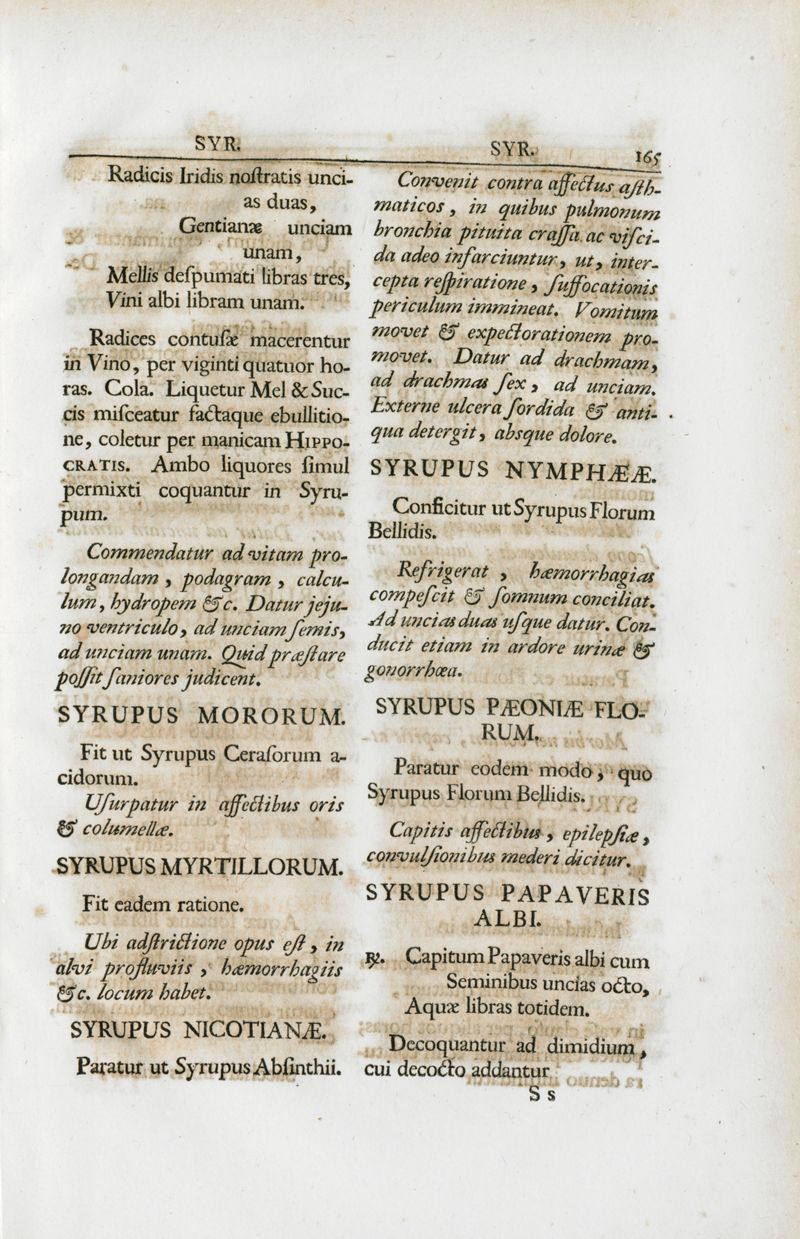 SYR.
Radicis Iridis noſtratis unci-
as duas,
Gentianæ unciam
unam,
Mellis deſpumati libras tres,
Vini albi libram unam.
Radices contuſæ macerentur
in Vino, per viginti quatuor ho-
ras. Cola. Liquetur Mel & Suc-
cis miſceatur factaque ebullitio-
ne, coletur per manicam HIPPO-
CRATIS. Ambo liquores ſimul
permixti coquantur in Syru-
pum.
Commendatur ad vitam pro-
longandam, podagram, calcu-
lum, hydropem &c. Datur jeju-
no ventriculo, ad unciam ſemis,
ad unciam unam. Quid præſtare
poſſit ſaniores judicent.
SYRUPUS MORORUM.
Fit ut Syrupus Ceraſorum a-
cidorum.
Uſurpatur in affectibus oris
& columellæ.
SYRUPUS MYRTILLORUM.
Fit eadem ratione.
Ubi adſtrictione opus eſt, in
alvi profluviis, hæmorrhagiis
&c. locum habet.
SYRUPUS NICOTIANÆ.
Paratur ut Syrupus Abſinthii.
SYR. 165
Convenit contra affectus aſth-
maticos, in quibus pulmonum
bronchia pituita craſſa ac viſci-
da adeo infarciuntur, ut, inter-
cepta reſpiratione, ſuffocationis
periculum immineat. Vomitum
movet & expectorationem pro-
movet. Datur ad drachmam,
ad drachmas ſex, ad unciam.
Externe ulcera ſordida & anti-
qua detergit, absque dolore.
SYRUPUS NYMPHÆÆ.
Conficitur ut Syrupus Florum
Bellidis.
Refrigerat, hæmorrhagias
compeſcit & ſomnum conciliat.
Ad uncias duas uſque datur. Con-
ducit etiam in ardore urinæ &
gonorrhœa.
SYRUPUS PÆONIÆ FLO-
RUM.
Paratur eodem modo, quo
Syrupus Florum Bellidis.
Capitis affectibus, epilepſiæ,
convulſionibus mederi dicitur.
SYRUPUS PAPAVERIS
ALBI.
℞. Capitum Papaveris albi cum
Seminibus uncias octo,
Aquæ libras totidem.
Decoquantur ad dimidium,
cui decocto addantur
S s